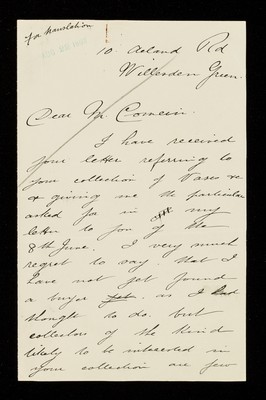 for translation
10 Acland Rd
Willesden Green.
Dear Mr Comein.
I have received
your letter referring to
your collection of Vases &c
& giving me the particulars
asked for in my
letter to you of the
8th June. I very much
regret to say that I
have not yet found
a buyer as I had
thought to do. but
collectors of the kind
likely to be interested in
your collection are few